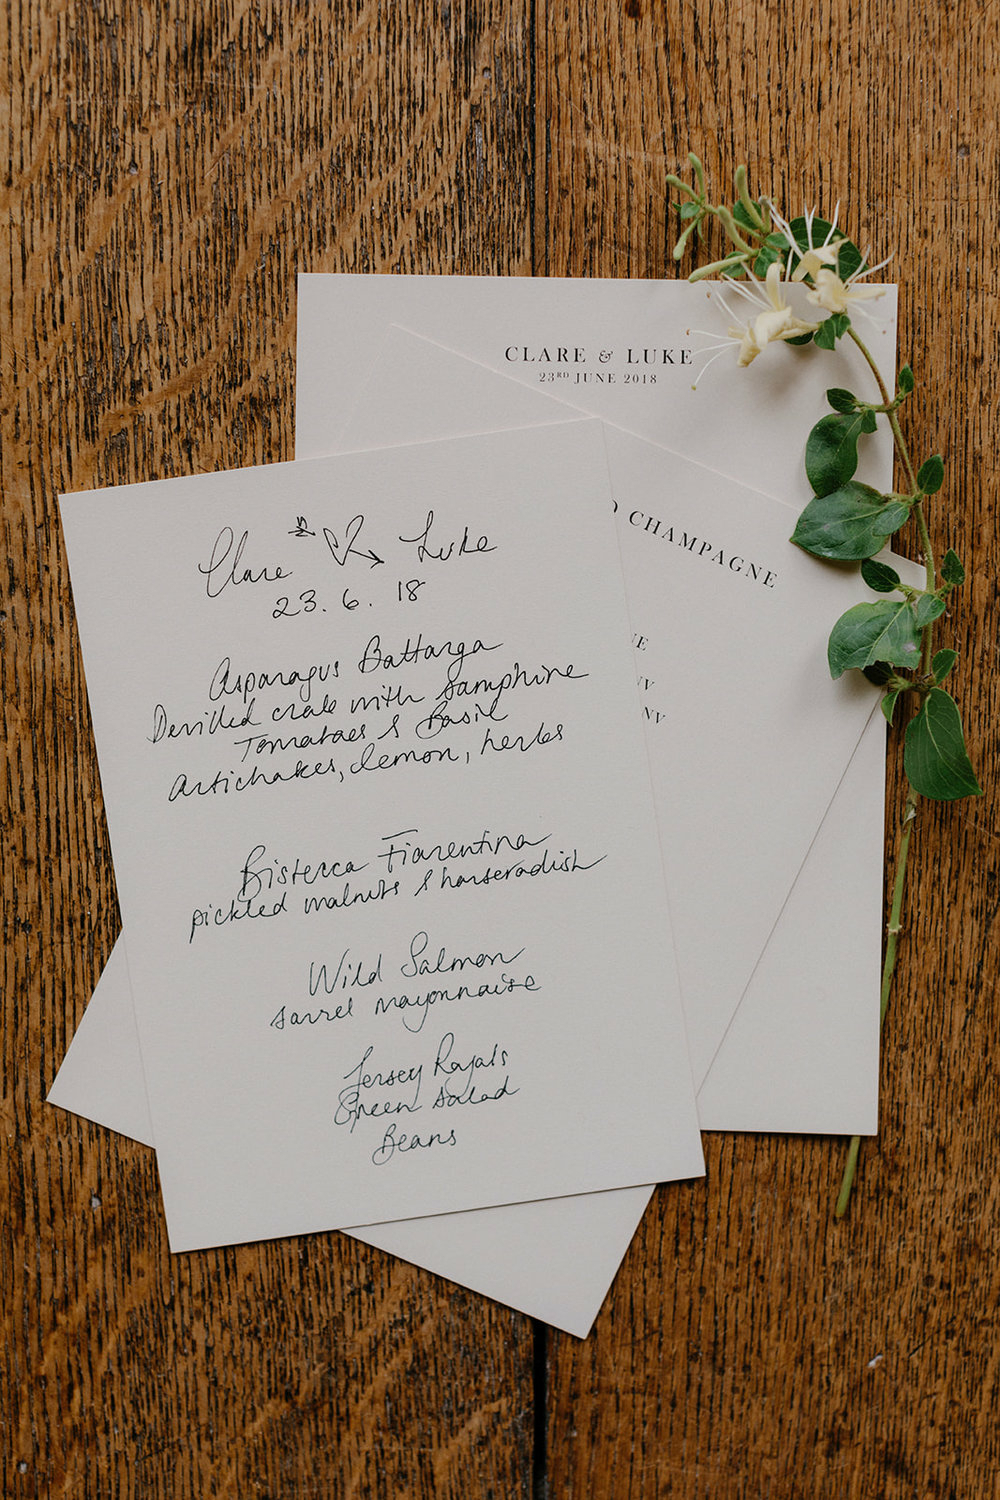 CLARE & LUKE
23RD JUNE 2018
CHAMPAGNE
NV
NV
Clare Luke
23. 6. 18
Asparagus Battarga
Devilled crab with samphire
Tomatoes & Basil
Artichokes, lemon, herbs
Bistecca Fiorentina
pickled walnuts & horseradish
Wild Salmon
sorrel mayonnaise
Jersey Royals
Green salad
Beans